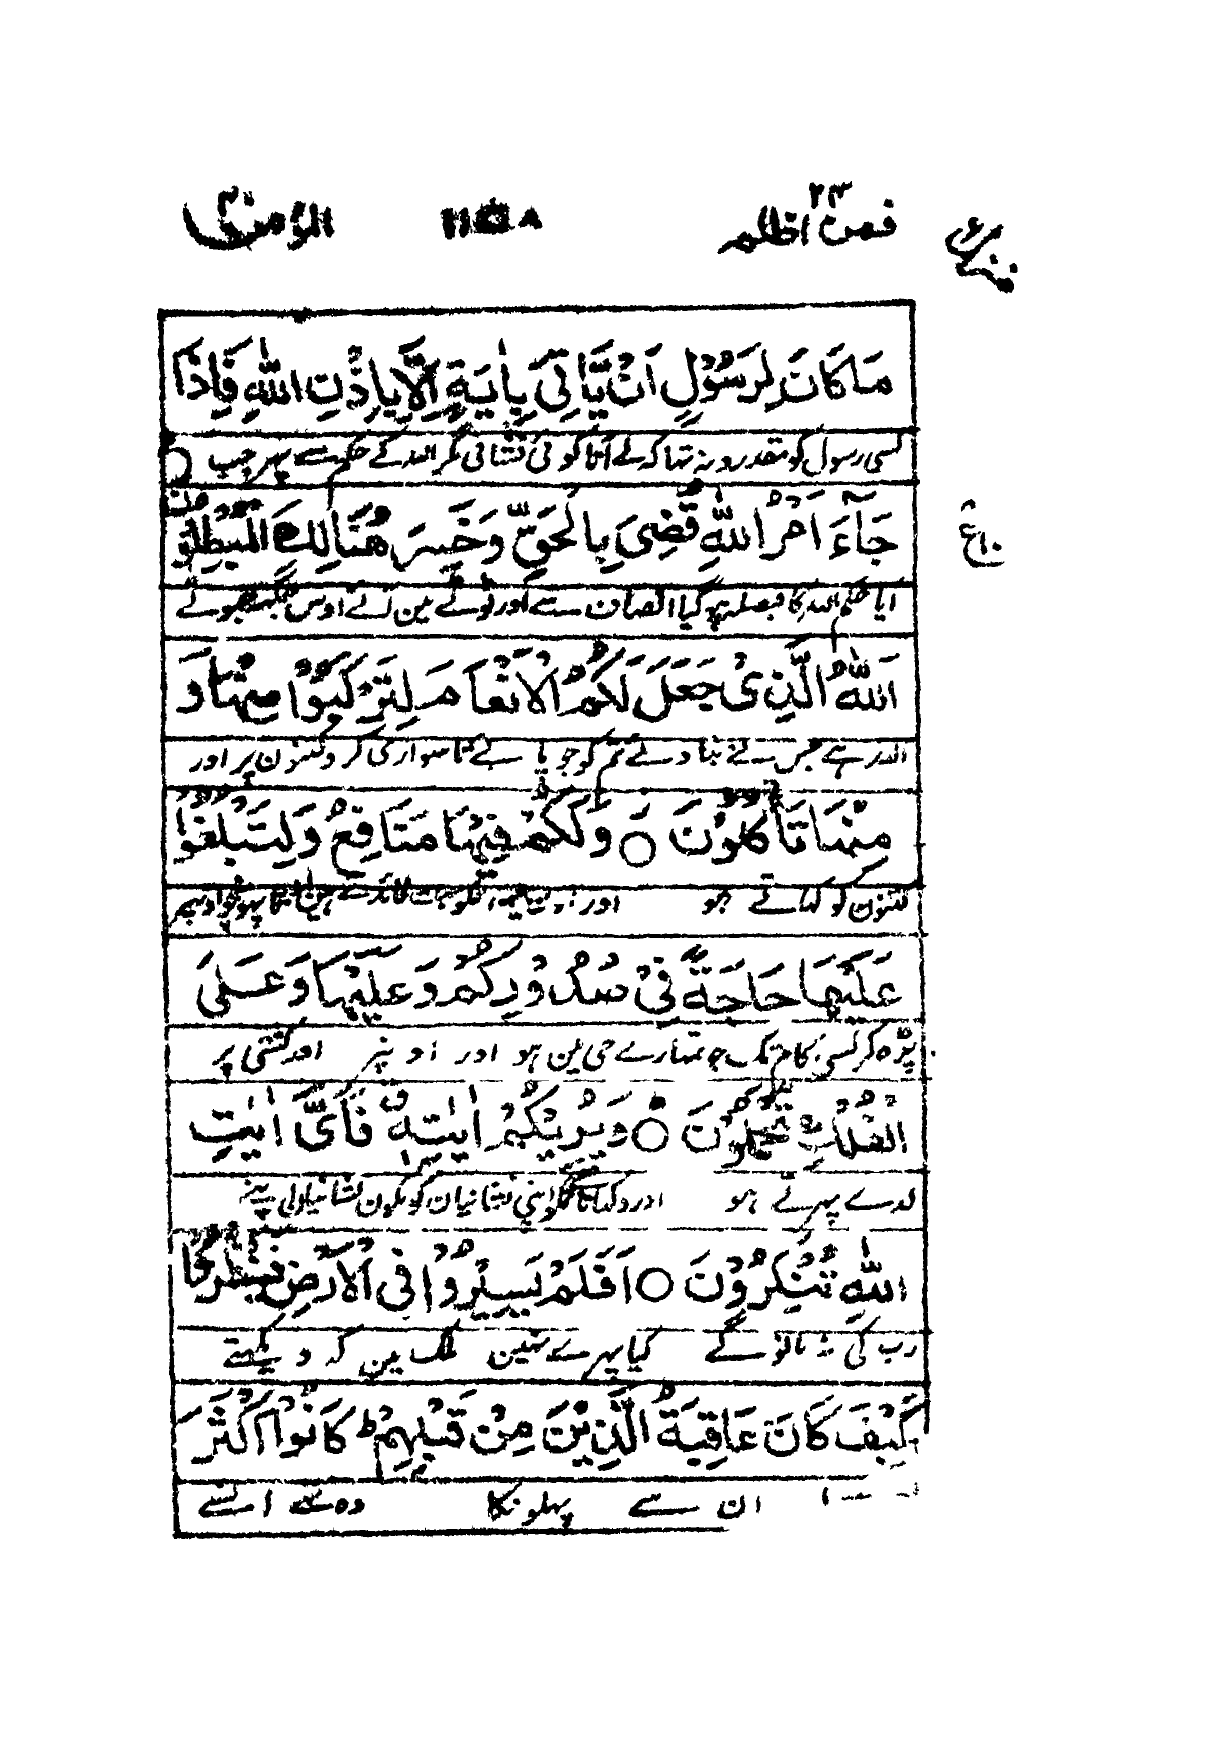 فمن اظلم ۲۴
المؤمن ۴۰
مَا كَانَ لِرَسُوْلٍ اَنْ يَّاْتِىَ بِاٰيَةٍ اِلَّا بِاِذْنِ اللّٰهِ فَاِذَا
کسی رسول کو مقدور نہ تہا کہ لے آتا کوئی نشانی مگر اللہ کے حکم سے پہر جب
جَآءَ اَمْرُ اللّٰهِ قُضِىَ بِالْحَقِّ وَخَسِرَ هُنَالِكَ الْمُبْطِلُوْنَ
آیا حکم اللہ کا فیصلہ ہو گیا انصاف سے اور ٹوٹے مین آئے اوس جگہ جھوٹے
ع ۱۰
اَللّٰهُ الَّذِىْ جَعَلَ لَكُمُ الْاَنْعَامَ لِتَرْكَبُوْا مِنْهَا وَ
اللہ ہے جس نے بنا دئے تم کو چوپائے تا سواری کرو کتنون پر اور
مِنْهَا تَاْكُلُوْنَ ○ وَلَكُمْ فِيْهَا مَنَافِعُ وَلِتَبْلُغُوْا
کتنون کو کہاتے ہو اور
عَلَيْهَا حَاجَةً فِىْ صُدُوْرِكُمْ وَعَلَيْهَا وَعَلَى
چڑہ کر کسی کام تک جو تمہارے جی مین ہو اور اونپر اور کشتی پر
الْفُلْكِ تُحْمَلُوْنَ ○ وَيُرِيْكُمْ اٰيٰتِهٖ فَاَىَّ اٰيٰتِ
لدے پہرتے ہو اور دکہاتا تمکو اپنی نشانیان کونکون نشانیان اپنے
اللّٰهِ تُنْكِرُوْنَ ○ اَفَلَمْ يَسِيْرُوْا فِى الْاَرْضِ فَيَنْظُرُوْا
رب کی نہ مانوگے کیا پہرے نہین ملک مین کہ دیکہتے
كَيْفَ كَانَ عَاقِبَةُ الَّذِيْنَ مِنْ قَبْلِهِمْ ط كَانُوْا اَكْثَرَ
ان سے پہلونکا وہ تہے انسے